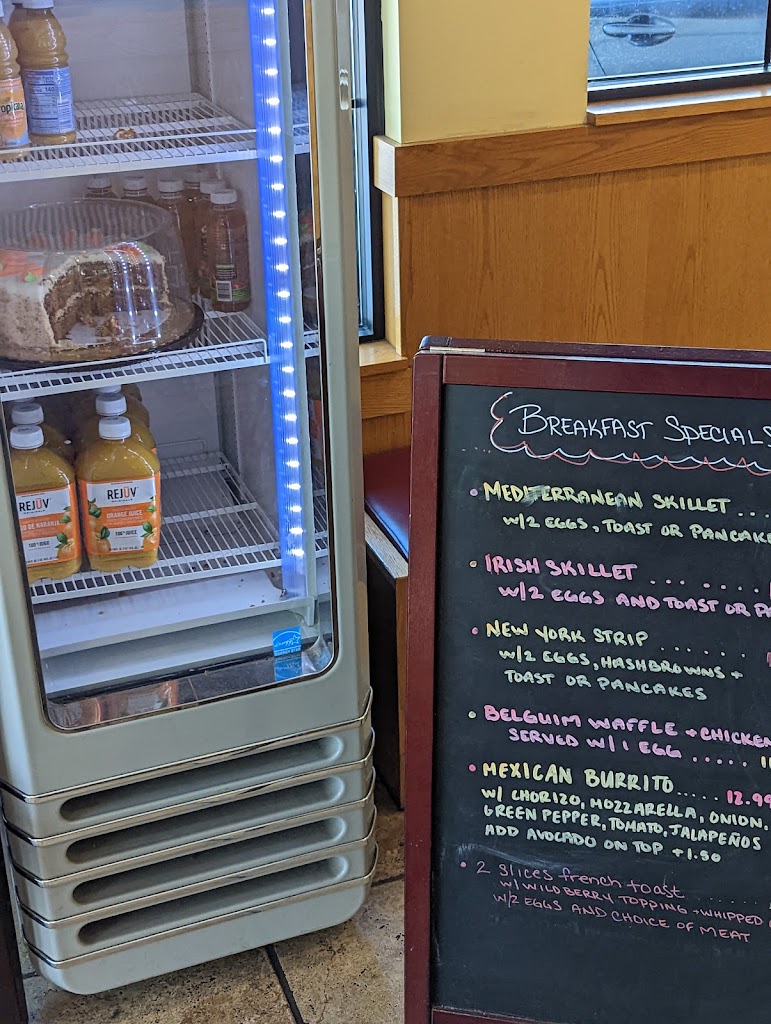 Tropicana
140
REJŪV
REJŪV
ORANGE JUICE
100% JUICE
O DE NARANJA
100% JUGO
BREAKFAST SPECIALS
• MEDITERRANEAN SKILLET ...
W/2 EGGS, TOAST OR PANCAKE
• IRISH SKILLET ... ... .
W/2 EGGS AND TOAST OR PA
• NEW YORK STRIP ......
W/2 EGGS, HASHBROWNS +
TOAST OR PANCAKES
• BELGUIM WAFFLE + CHICKEN
SERVED W/1 EGG .....
• MEXICAN BURRITO..... 12.99
W/ CHORIZO, MOZZARELLA, ONION,
GREEN PEPPER, TOMATO, JALAPEÑOS
ADD AVOCADO ON TOP +1.50
• 2 slices french toast ........
W/ WILD BERRY TOPPING + WHIPPED
W/2 EGGS AND CHOICE OF MEAT